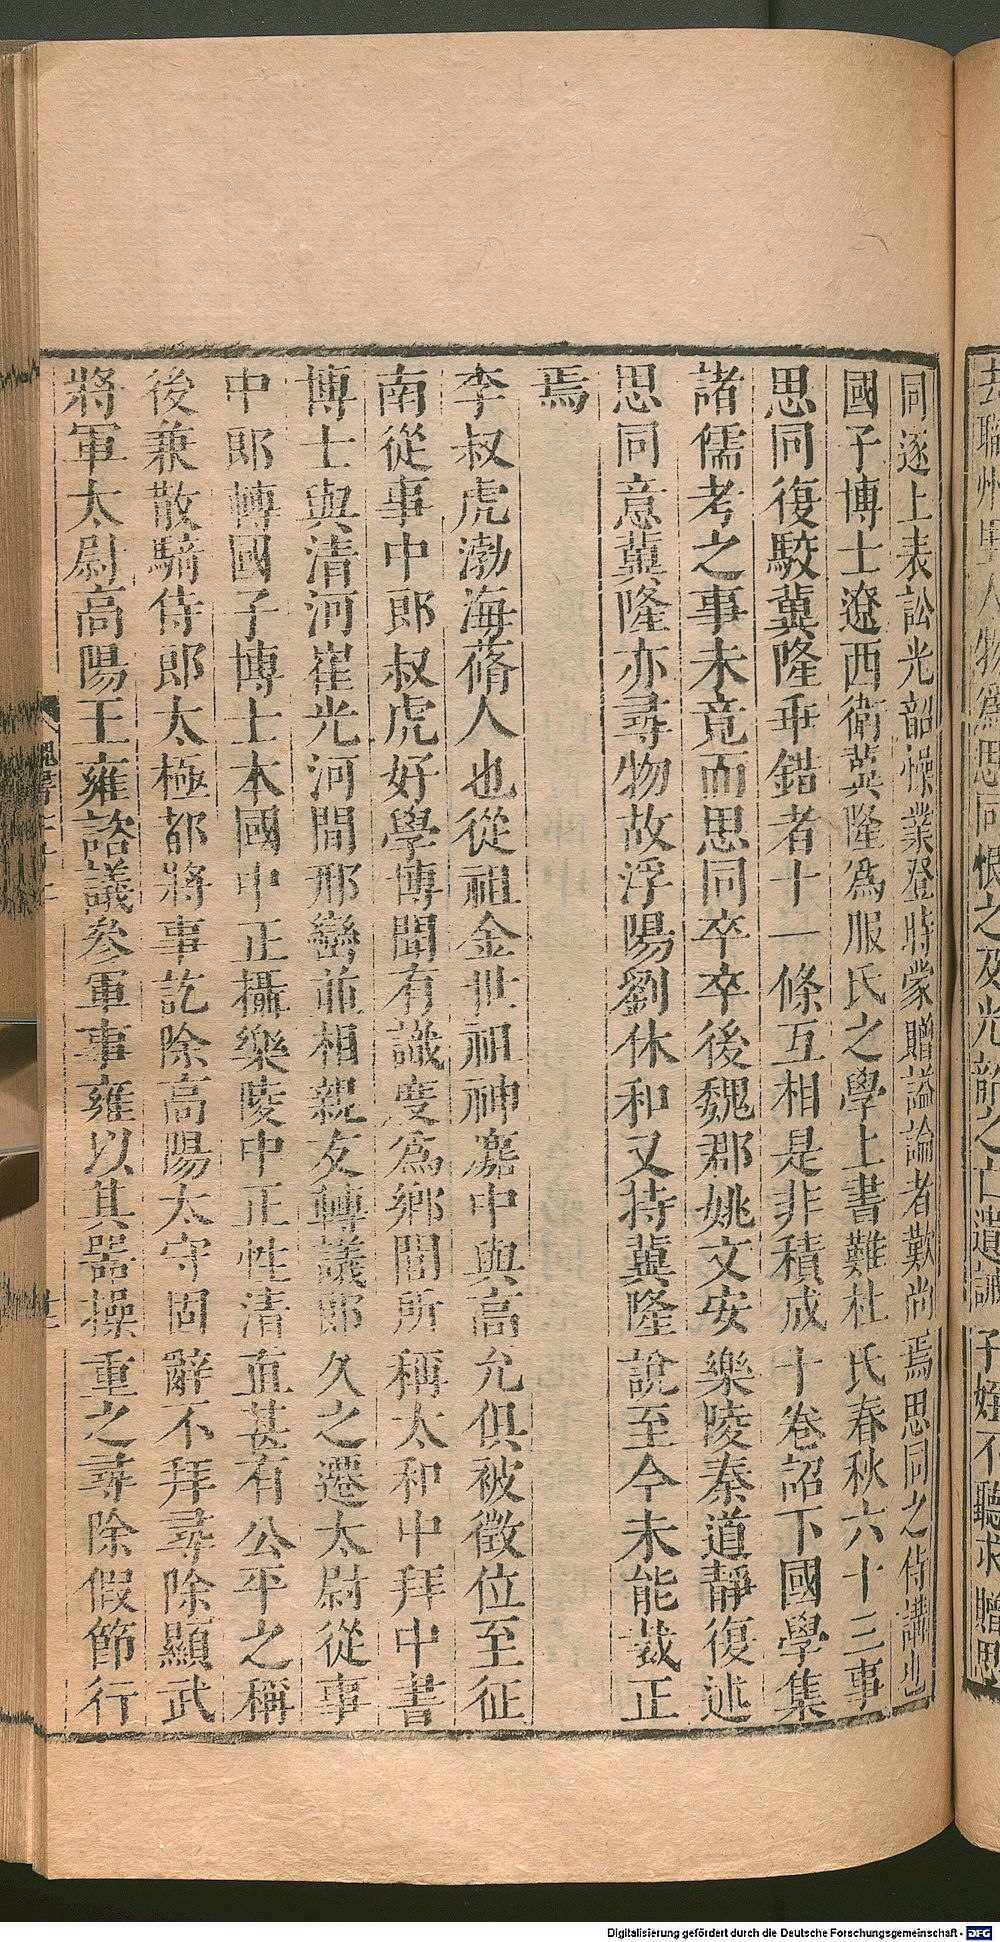 去職州里人物爲思同恨之及光韶之亡遺誡子姪不聽求贈思
同遂上表訟光韶操業登時蒙贈諡論者歎尚焉思同之侍講也
國子博士遼西衛冀隆爲服氏之學上書難杜氏春秋六十三事
思同復駮冀隆乖錯者十一條互相是非積成十卷詔下國學集
諸儒考之事未竟而思同卒卒後魏郡姚文安樂陵秦道靜復述
思同意冀隆亦尋物故浮陽劉休和又持冀隆說至今未能裁正
焉
李叔虎渤海蓨人也從祖金世祖神䴥中與高允俱被徵位至征
南從事中郎叔虎好學博聞有識度爲鄉閭所稱太和中拜中書
博士與清河崔光河間邢巒並相親友轉議郎久之遷太尉從事
中郎轉國子博士本國中正攝樂陵中正性清直甚有公平之稱
後兼散騎侍郎太極都將事訖除高陽太守固辭不拜尋除顯武
將軍太尉高陽王雍諮議參軍事雍以其器操重之尋除假節行
Digitalisierung gefördert durch die Deutsche Forschungsgemeinschaft - DFG